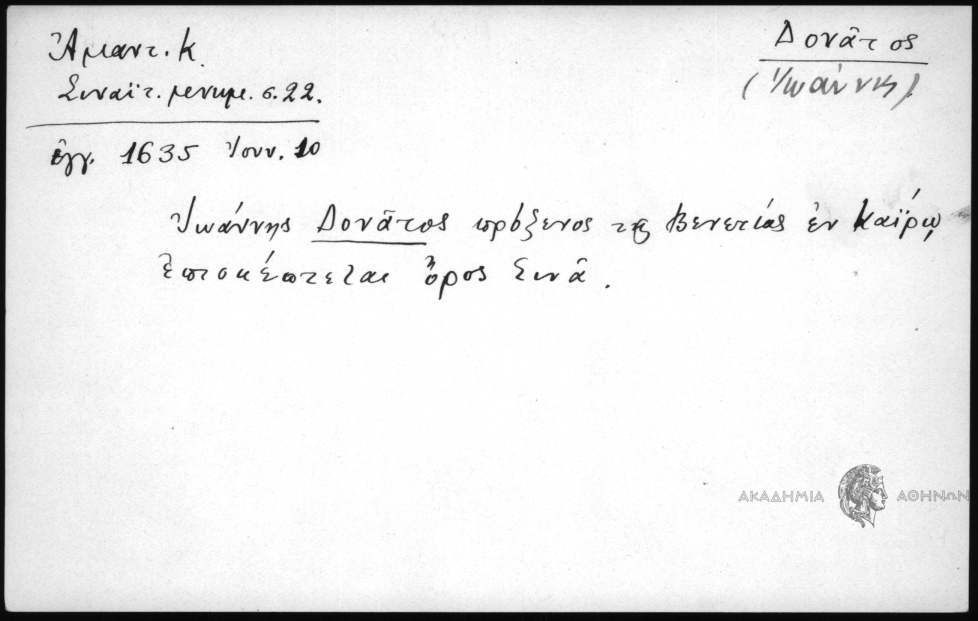 Ἀμαντ. Κ.
Σιναϊτ. μνημ. σ. 22.
Δονᾶτος
(Ἰωάννης)
ἔγγ. 1635 Ἰουν. 10
Ἰωάννης Δονᾶτος πρόξενος τῆς Βενετίας ἐν Καΐρῳ
ἐπισκέπτεται ὄρος Σινᾶ.
ΑΚΑΔΗΜΙΑ ΑΘΗΝΩΝ